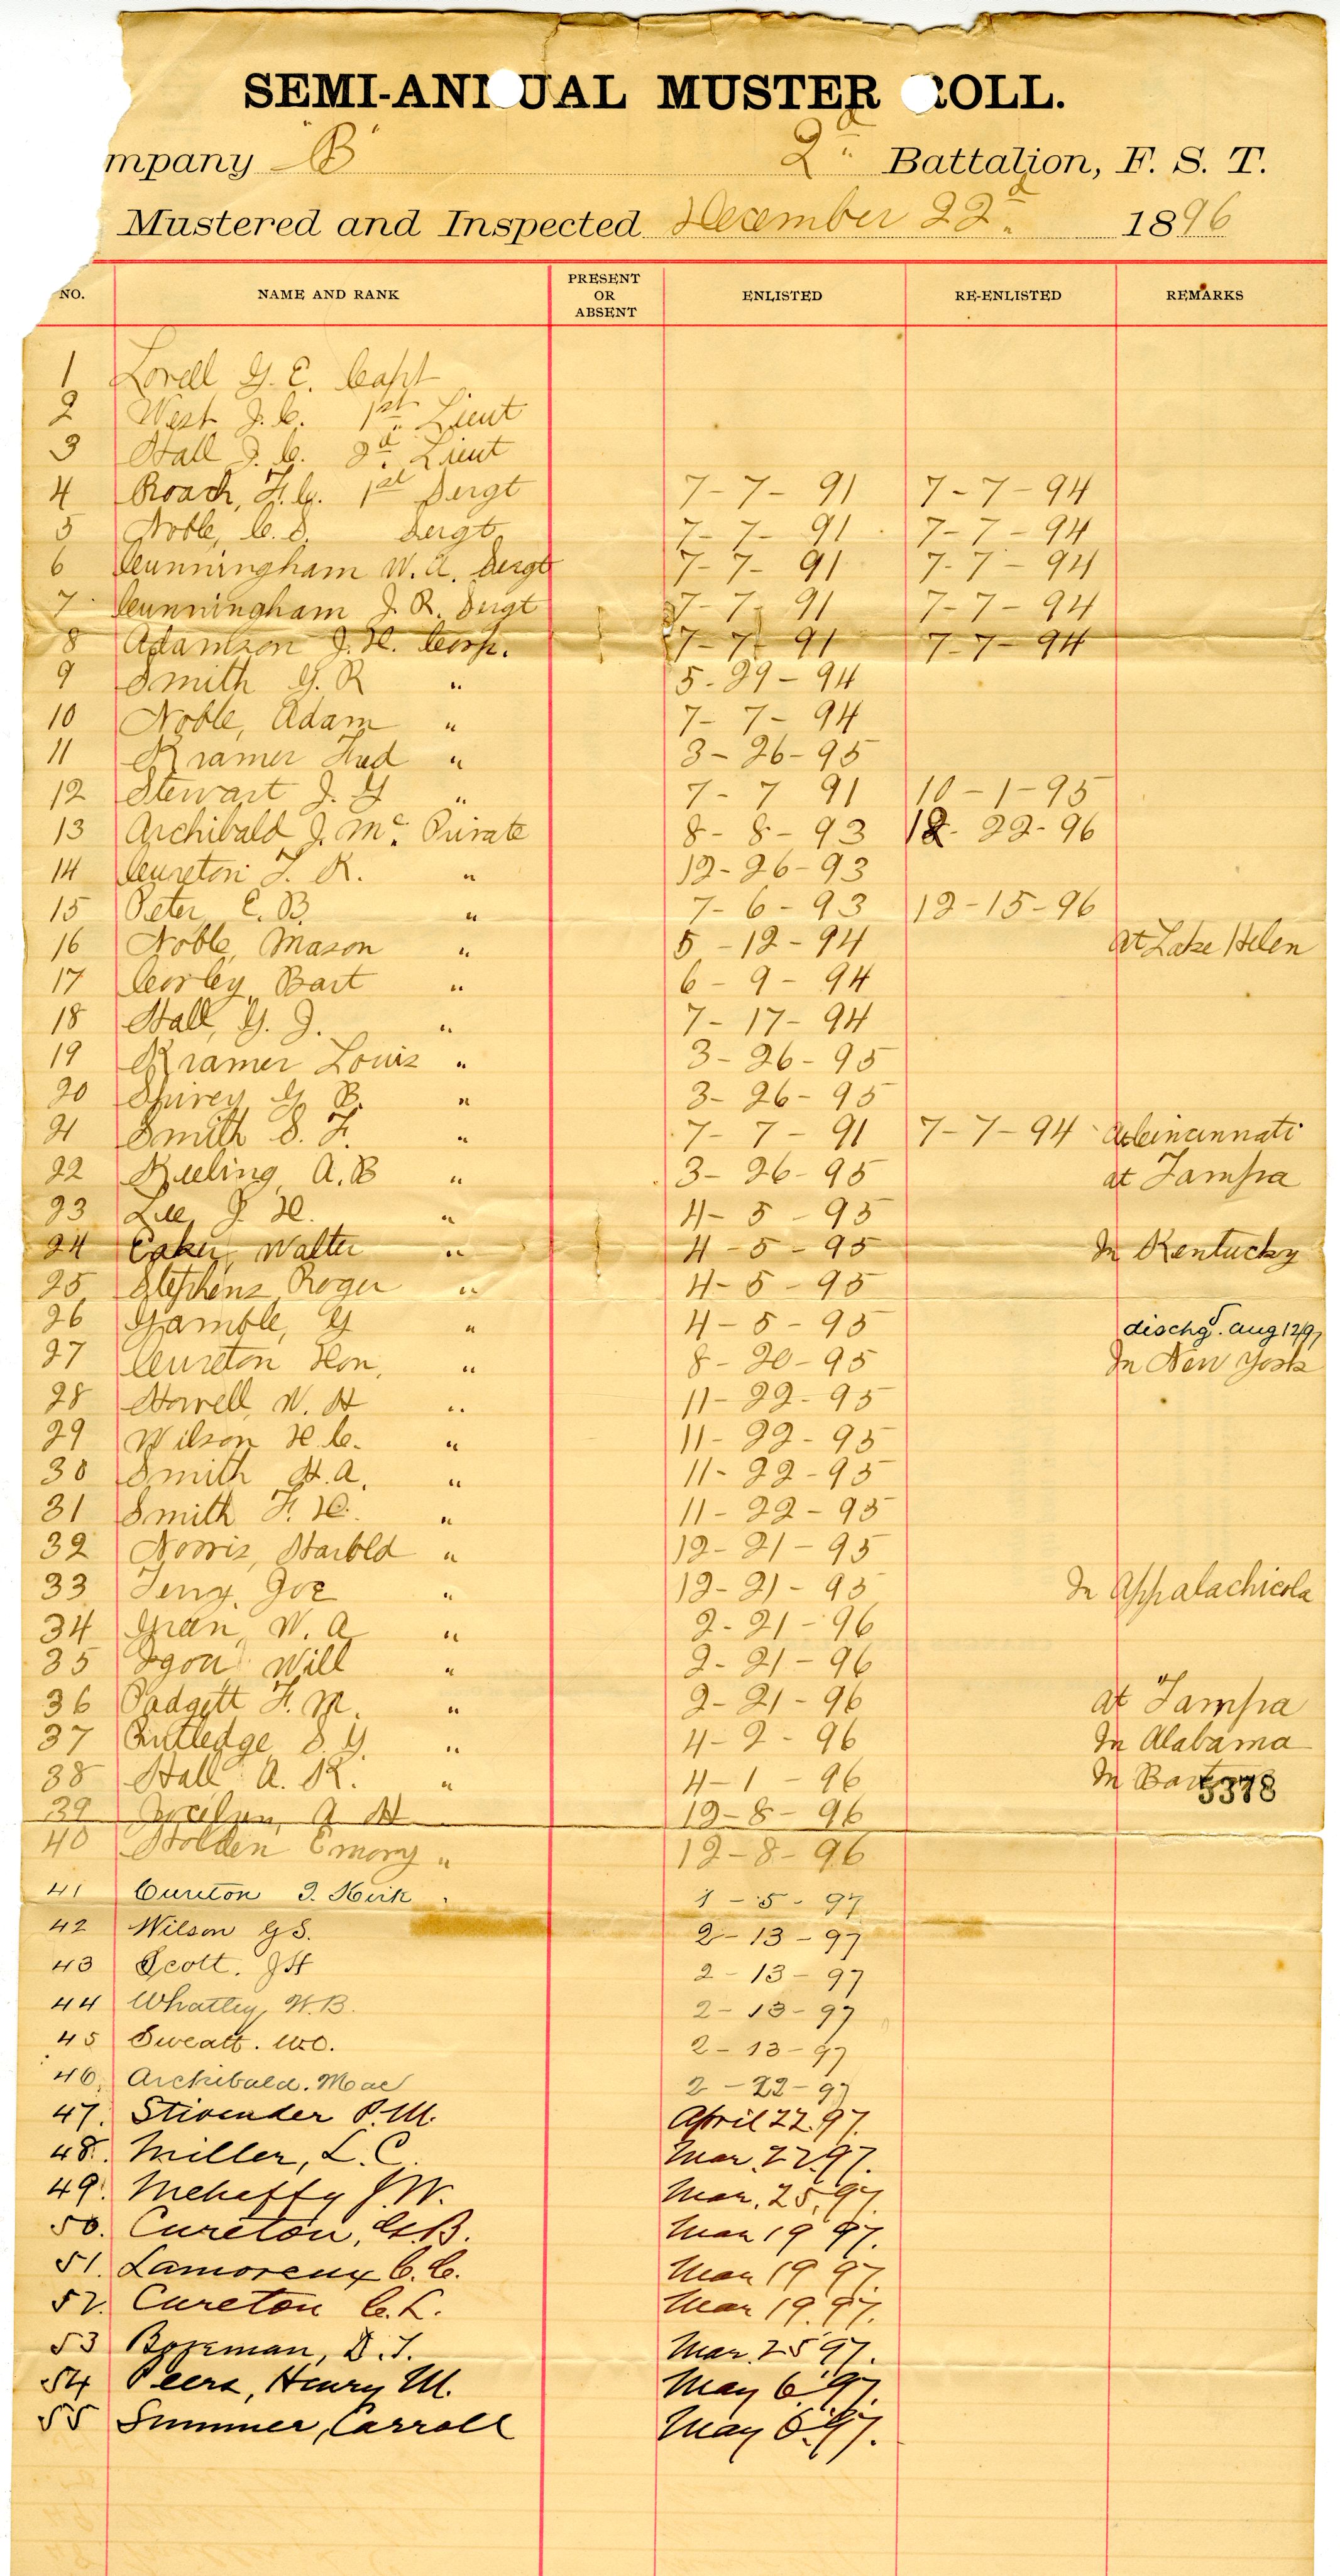 SEMI-ANNUAL MUSTER ROLL.
mpany "B" 2d Battalion, F. S. T.
Mustered and Inspected December 22d 1896
NO. NAME AND RANK PRESENT OR ABSENT ENLISTED RE-ENLISTED REMARKS
1 Lovell G. E. Capt
2 West J. C. 1st Lieut
3 Hall J. C. 2d Lieut
4 Roach, F. C. 1st Sergt 7-7-91 7-7-94
5 Noble, C. S. Sergt 7-7-91 7-7-94
6 Cunningham W. A. Sergt 7-7-91 7-7-94
7 Cunningham J. R. Sergt 7-7-91 7-7-94
8 Adamson J. H. Corp. 7-7-91 7-7-94
9 Smith G. R " 5-29-94
10 Noble, Adam " 7-7-94
11 Kramer Fred " 3-26-95
12 Stewart J. G " 7-7 91 10-1-95
13 Archibald J. Mc. Private 8-8-93 12-22-96
14 Cureton T. K. " 12-26-93
15 Peter E. B. " 7-6-93 12-15-96
16 Noble, Mason " 5-12-94 At Lake Helen
17 Corley, Bart " 6-9-94
18 Hall, G. J. " 7-17-94
19 Kramer Louis " 3-26-95
20 Spirey G B. " 3-26-95
21 Smith S. F. " 7-7-91 7-7-94 at Cincinnati
22 Keeling A. B " 3-26-95 at Tampa
23 Lee, J. H. " 4-5-95
24 Eaker, Walter " 4-5-95 In Kentucky
25 Stephens Roger " 4-5-95
26 Gamble, G " 4-5-95 dischgd. Aug 12/97
27 Cureton Hon, " 8-20-95 In New York
28 Howell, W. H " 11-22-95
29 Wilson H C. " 11-22-95
30 Smith H. A. " 11-22-95
31 Smith F. H. " 11-22-95
32 Norris, Harbld " 12-21-95
33 Terry, Joe " 12-21-95 In Appalachicola
34 Green, W. A " 2-21-96
35 Igou Will " 2-21-96
36 Padgett F. M. " 2-21-96 at Tampa
37 Rutledge S. G. " 4-2-96 In Alabama
38 Hall A. K. " 4-1-96 In
5378
39 A H 12-8-96
40 Holden Emory " 12-8-96
41 Cureton T. Kirk " 1-5-97
42 Wilson G S. 2-13-97
43 Scott. J H 2-13-97
44 Whatley, W. B. 2-13-97
45 Sweatt. W.O. 2-13-97
46. Archibald. Mac 2-22-97
47. Stivender P. M. April 22. 97.
48. Miller, L. C. Mar. 22. 97.
49. Mehaffy J. W. Mar. 25, 97.
50. Cureton, G. B. Mar 19 97.
51. Lamoreux C. C. Mar 19 97.
52. Cureton C. L. Mar 19. 97.
53 Bozeman, D. T. Mar. 25 97.
54 Peera, Henry M. May 6 97.
55 Summer, Carroll May 6. 97.